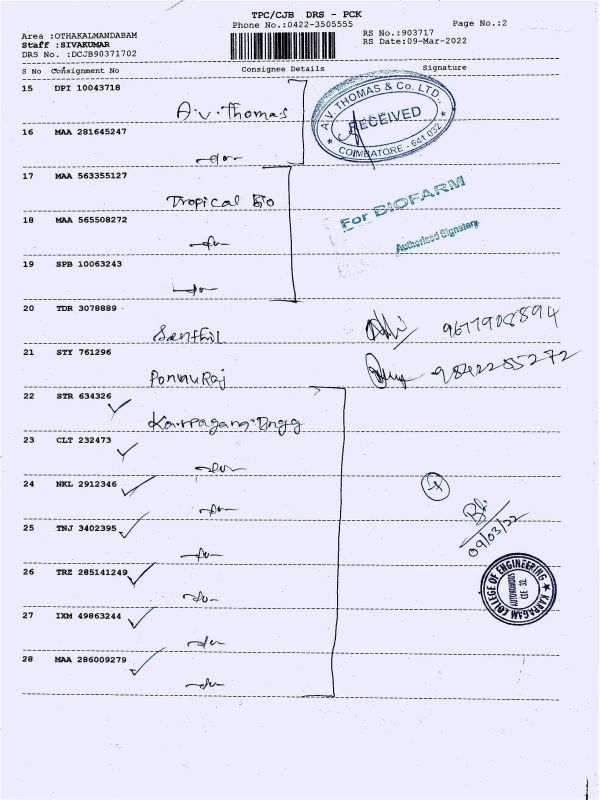 TPC/CJB DRS - PCK
Phone No.:0422-3505555
Page No.:2
Area :OTHAKALMANDABAM
Staff :SIVAKUMAR
DRS No. :DCJB90371702
RS No.:903717
RS Date:09-Mar-2022
S No Consignment No Consignee Details Signature
15 DPI 10043718
A.V. Thomas
A.V. THOMAS & Co. LTD.,
RECEIVED
COIMBATORE - 641 032
16 MAA 281645247
-do-
17 MAA 563355127
Tropical Bio
For BIOFARM
18 MAA 565508272
-do-
Authorised Signatory
19 SPB 10063243
-do-
20 TDR 3078889
Senthil 9677908894
21 STY 761296
Ponnu Raj 9842285272
22 STR 634326
Karpagam Engg
23 CLT 232473
-do-
24 NKL 2912346
-do-
25 TNJ 3402395
-do-
09/03/22
26 TRZ 285141249
-do-
KARPAGAM COLLEGE OF ENGINEERING
AUTONOMOUS
CBE 32.
27 IXM 49863244
-do-
28 MAA 286009279
-do-